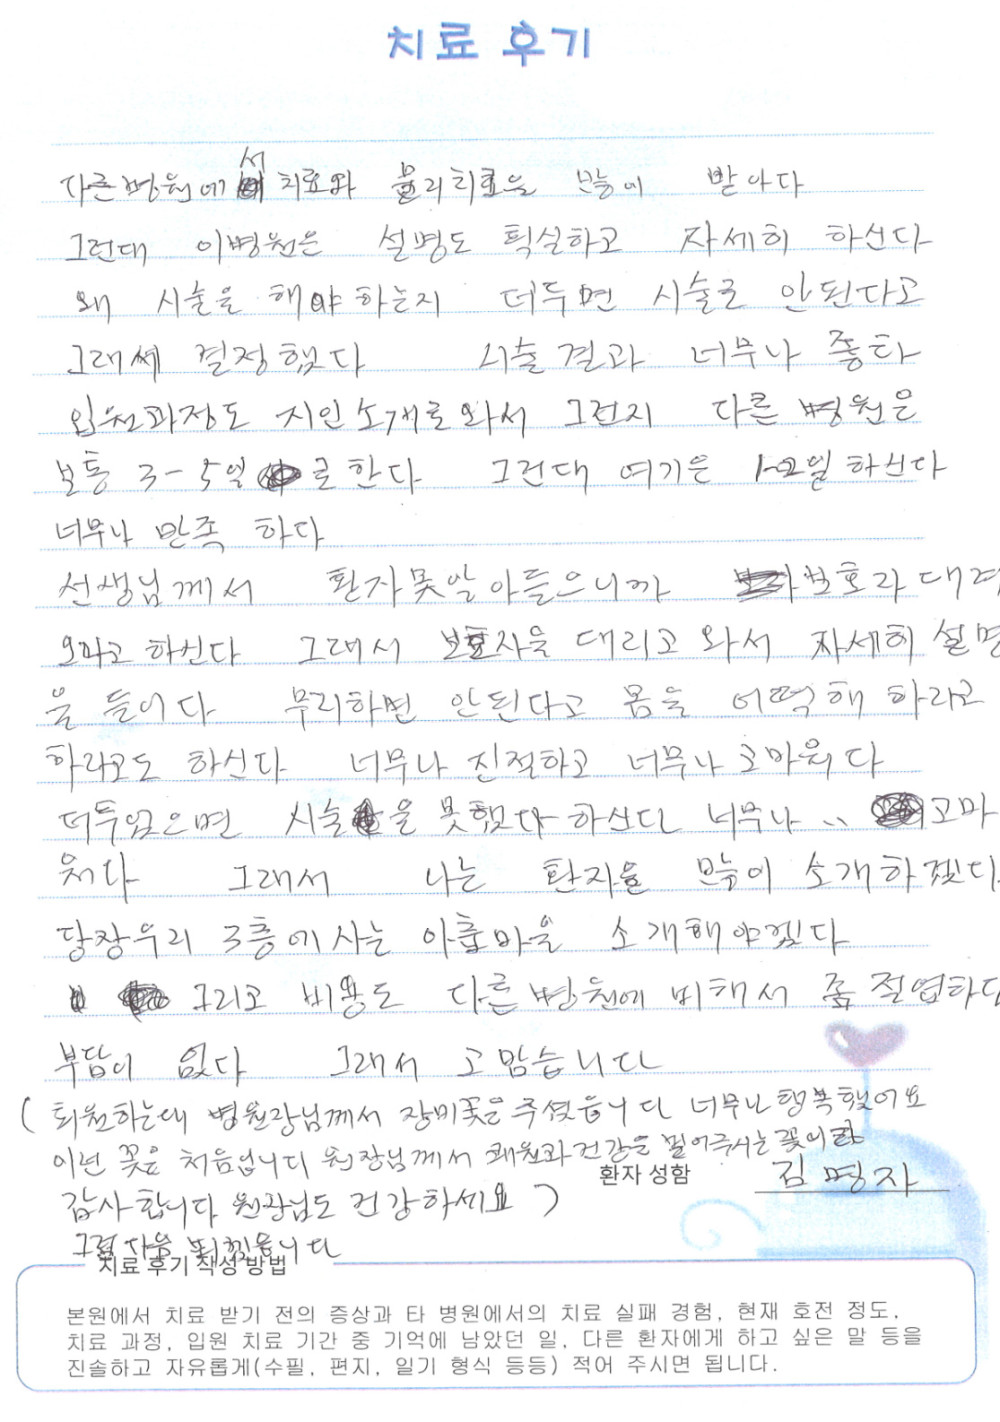 치료 후기
다른병원에서 치료와 물리치료을 많이 받아다
그런대 이병원은 설명도 틱실하고 자세히 하신다
왜 시술을 해야 하는지 더두면 시술로 안된다고
그래쎄 결정했다 시술결과 너무나 좋타
입원과정도 지인소개로와서 그런지 다른 병원은
보통 3-5일 로한다 그런대 여기은 1-2일 하신다
너무나 만족 하다
선생님께서 환자못알아들으니까 보호라대려
오라고 하신다 그래서 보호자을 대리고 와서 자세히 설명
을 들어다 무리하면 안된다고 몸을 어떡해 하라고
하라고도 하신다 너무나 진적하고 너무나 고마워다
더두었으면 시술을 못했다 하신다 너무나 .. 고마
워다 그래서 나는 환자을 많이 소개하겠다
당장우리 3층에사는 아줌마을 소개해야겠다
그리고 비용도 다른병원에 비해서 좀 절업하다
부담이 없다 그래서 고맙습니다
( 퇴원하는대 병원장님께서 장미꽃을주셨읍니다 너무나 행복했어요
이런 꽃은 처음입니다 원장님께서 쾌원과건강을 빌어주시는 꽃이라
환자 성함 김명자
감사합니다 원장님도 건강하세요 )
그럼 다음 뵈겠읍니다
치료 후기 작성 방법
본원에서 치료 받기 전의 증상과 타 병원에서의 치료 실패 경험, 현재 호전 정도,
치료 과정, 입원 치료 기간 중 기억에 남았던 일, 다른 환자에게 하고 싶은 말 등을
진솔하고 자유롭게(수필, 편지, 일기 형식 등등) 적어 주시면 됩니다.